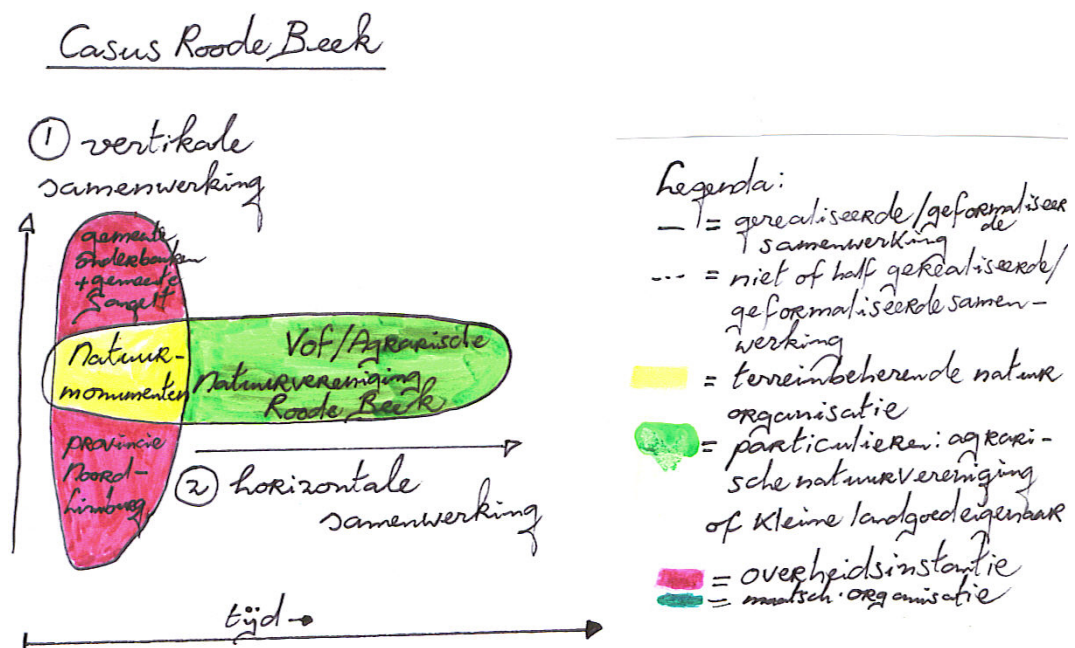 Casus Roode Beek
1 vertikale
samenwerking
gemeente
onderbanken
+ gemeente
Gangelt
Natuur-
monumenten
Vof/Agrarische
Natuurvereniging
Roode Beek
provincie
Noord-
Limburg
2 horizontale
samenwerking
tijd →
Legenda:
— = gerealiseerde/geformaliseer
de
samenwerking
--- = niet of half gerealiseerde/
geformaliseerde samen-
werking
= terreinbeherende natuur
organisatie
= particulieren: agrari-
sche natuurvereniging
of kleine landgoedeigenaar
= overheidsinstantie
= maatsch. organisatie